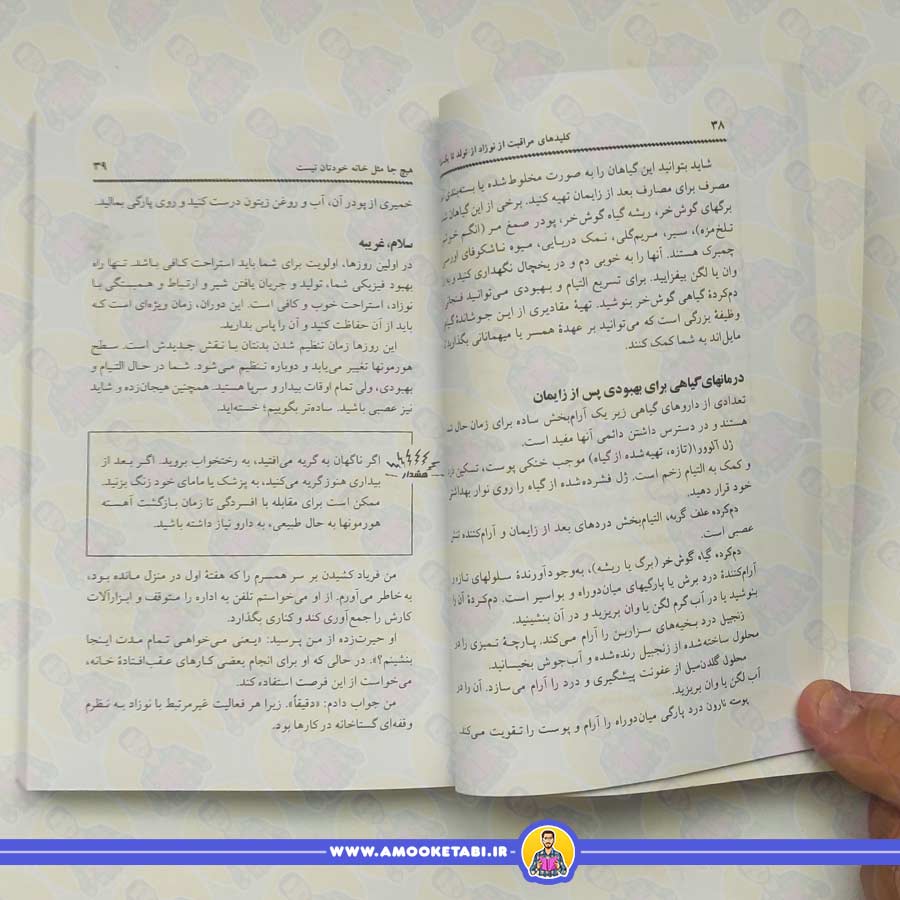 ۳۸
کلیدهای مراقبت از نوزاد از تولد تا
شاید بتوانید این گیاهان را به صورت مخلوط شده یا بسته‌بندی
مصرف برای مصارف بعد از زایمان تهیه کنید. برخی از این گیاهان
برگهای گوش‌خر، ریشه گیاه گوش‌خر، پودر صمغ مر (انگم
تلخ‌مزه)، سیر، مریم‌گلی، نمک دریایی، میوه ناشکوفای
چمبرک هستند. آنها را به خوبی دم و در یخچال نگهداری کنید و به
وان یا لگن بیفزایید. برای تسریع التیام و بهبودی می‌توانید فنجانی
دم‌کردهٔ گیاهی گوش‌خر بنوشید. تهیهٔ مقادیری از این جوشاندهٔ
وظیفهٔ بزرگی است که می‌توانید بر عهدهٔ همسر یا میهمانانی بگذارید
مایل‌اند به شما کمک کنند.
درمانهای گیاهی برای بهبودی پس از زایمان
تعدادی از داروهای گیاهی زیر یک آرام‌بخش ساده برای زمان حال
هستند و در دسترس داشتن دائمی آنها مفید است.
ژل آلوورا (تازه، تهیه‌شده از گیاه) موجب خنکی پوست، تسکین درد
و کمک به التیام زخم است. ژل فشرده‌شده از گیاه را روی نوار بهداشتی
خود قرار دهید.
دم‌کرده علف گربه، التیام‌بخش دردهای بعد از زایمان و آرام‌کننده
عصبی است.
دم‌کرده گیاه گوش‌خر (برگ یا ریشه)، به‌وجودآورندهٔ سلولهای تازه و
آرام‌کنندهٔ درد برش یا پارگیهای میان‌دوراه و بواسیر است. دم‌کردهٔ آن را
بنوشید یا در آب گرم لگن یا وان بریزید و در آن بنشینید.
زنجبیل درد بخیه‌های سزارین را آرام می‌کند. پارچهٔ تمیزی را در
محلول ساخته‌شده از زنجبیل رنده‌شده و آب‌جوش بخیسانید.
محلول گلدن‌سیل از عفونت پیشگیری و درد را آرام می‌سازد. آن را در
آب لگن یا وان بریزید.
پوسته نارون درد پارگی میان‌دوراه را آرام و پوست را تقویت می‌کند
هیچ جا مثل خانه خودتان نیست
۳۹
خمیری از پودر آن، آب و روغن زیتون درست کنید و روی پارگی بمالید.
سلام، غریبه
در اولین روزها، اولویت برای شما باید استراحت کافی باشد. تنها راه
بهبود فیزیکی شما، تولید و جریان یافتن شیر و ارتباط و همبستگی با
نوزاد، استراحت خوب و کافی است. این دوران، زمان ویژه‌ای است که
باید از آن حفاظت کنید و آن را پاس بدارید.
این روزها زمان تنظیم شدن بدنتان با نقش جدیدش است. سطح
هورمونها تغییر می‌یابد و دوباره تنظیم می‌شود. شما در حال التیام و
بهبودی، ولی تمام اوقات بیدار و سرپا هستید. همچنین هیجان‌زده و شاید
نیز عصبی باشید. ساده‌تر بگوییم؛ خسته‌اید.
هشدار
اگر ناگهان به گریه می‌افتید، به رختخواب بروید. اگر بعد از
بیداری هنوز گریه می‌کنید، به پزشک یا مامای خود زنگ بزنید.
ممکن است برای مقابله با افسردگی تا زمان بازگشت آهسته
هورمونها به حال طبیعی، به دارو نیاز داشته باشید.
من فریاد کشیدن بر سر همسرم را که هفتهٔ اول در منزل مانده بود،
به خاطر می‌آورم. از او می‌خواستم تلفن به اداره را متوقف و ابزارآلات
کارش را جمع‌آوری کند و کناری بگذارد.
او حیرت‌زده از من پرسید: «یعنی می‌خواهی تمام مدت اینجا
بنشینم؟». در حالی که او برای انجام بعضی کارهای عقب‌افتادهٔ خانه،
می‌خواست از این فرصت استفاده کند.
من جواب دادم: «دقیقاً». زیرا هر فعالیت غیرمرتبط با نوزاد به نظرم
وقفه‌ای گستاخانه در کارها بود.
WWW.AMOOKETABI.IR